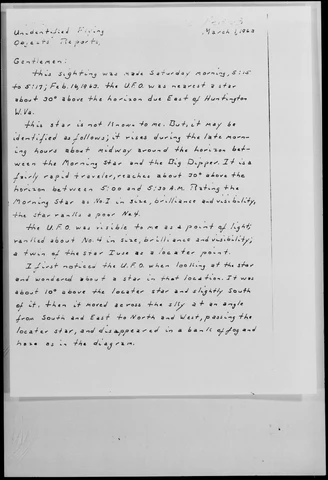 Unidentified Flying
Objects Reports,
March 1, 1963
Gentlemen:
This sighting was made Saturday morning, 5:15
to 5:17; Feb. 16, 1963. The U.F.O. was nearest a star
about 30° above the horizon due East of Huntington
W.Va.
This star is not known to me. But, it may be
identified as follows; it rises during the late morn-
ing hours about midway around the horizon bet-
ween the Morning Star and the Big Dipper. It is a
fairly rapid traveler, reaches about 30° above the
horizon between 5:00 and 5:30 A.M. Rating the
Morning Star as No. 1 in size, brilliance and visibility,
the star ranks a poor No. 4.
The U.F.O. was visible to me as a point of light;
ranked about No. 4 in size, brilliance and visibility;
a twin of the star I use as a locater point.
I first noticed the U.F.O. when looking at the star
and wondered about a star in that location. It was
about 10° above the locater star and slightly South
of it. Then it moved across the sky at an angle
from South and East to North and West, passing the
locater star, and disappeared in a bank of fog and
haze as in the diagram.